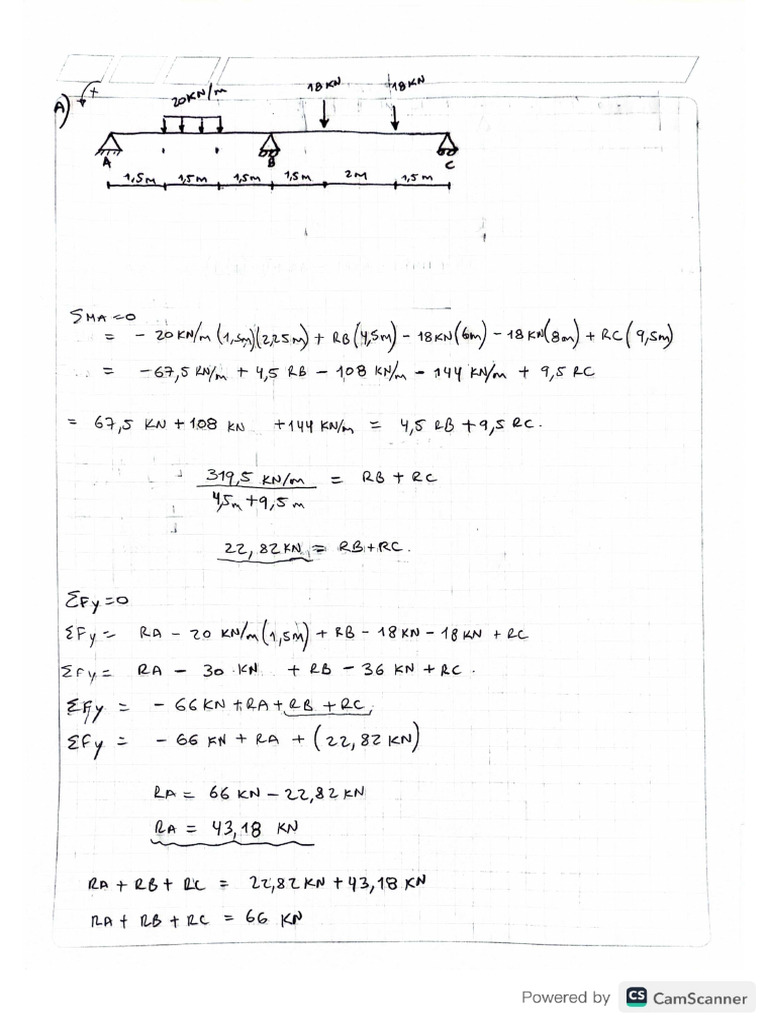 A) +
20KN/m 18KN 18KN
A B C
1,5m 1,5m 1,5m 1,5m 2m 1,5m
ΣMA=0
= - 20 KN/m (1,5m)(2,25m) + RB(4,5m) - 18KN(6m) - 18KN(8m) + RC(9,5m)
= -67,5 KN/m + 4,5 RB - 108 KN/m - 144 KN/m + 9,5 RC
= 67,5 KN + 108 KN + 144 KN/m = 4,5 RB + 9,5 RC.
319,5 KN/m = RB + RC
4,5m + 9,5 m
22,82 KN = RB + RC.
ΣFy=0
ΣFy= RA - 20 KN/m(1,5m) + RB - 18 KN - 18 KN + RC
ΣFy= RA - 30 KN + RB - 36 KN + RC.
ΣFy = - 66 KN + RA + RB + RC
ΣFy = - 66 KN + RA + (22,82 KN)
RA = 66 KN - 22,82 KN
RA = 43,18 KN
RA + RB + RC = 22,82 KN + 43,18 KN
RA + RB + RC = 66 KN
Powered by CS CamScanner